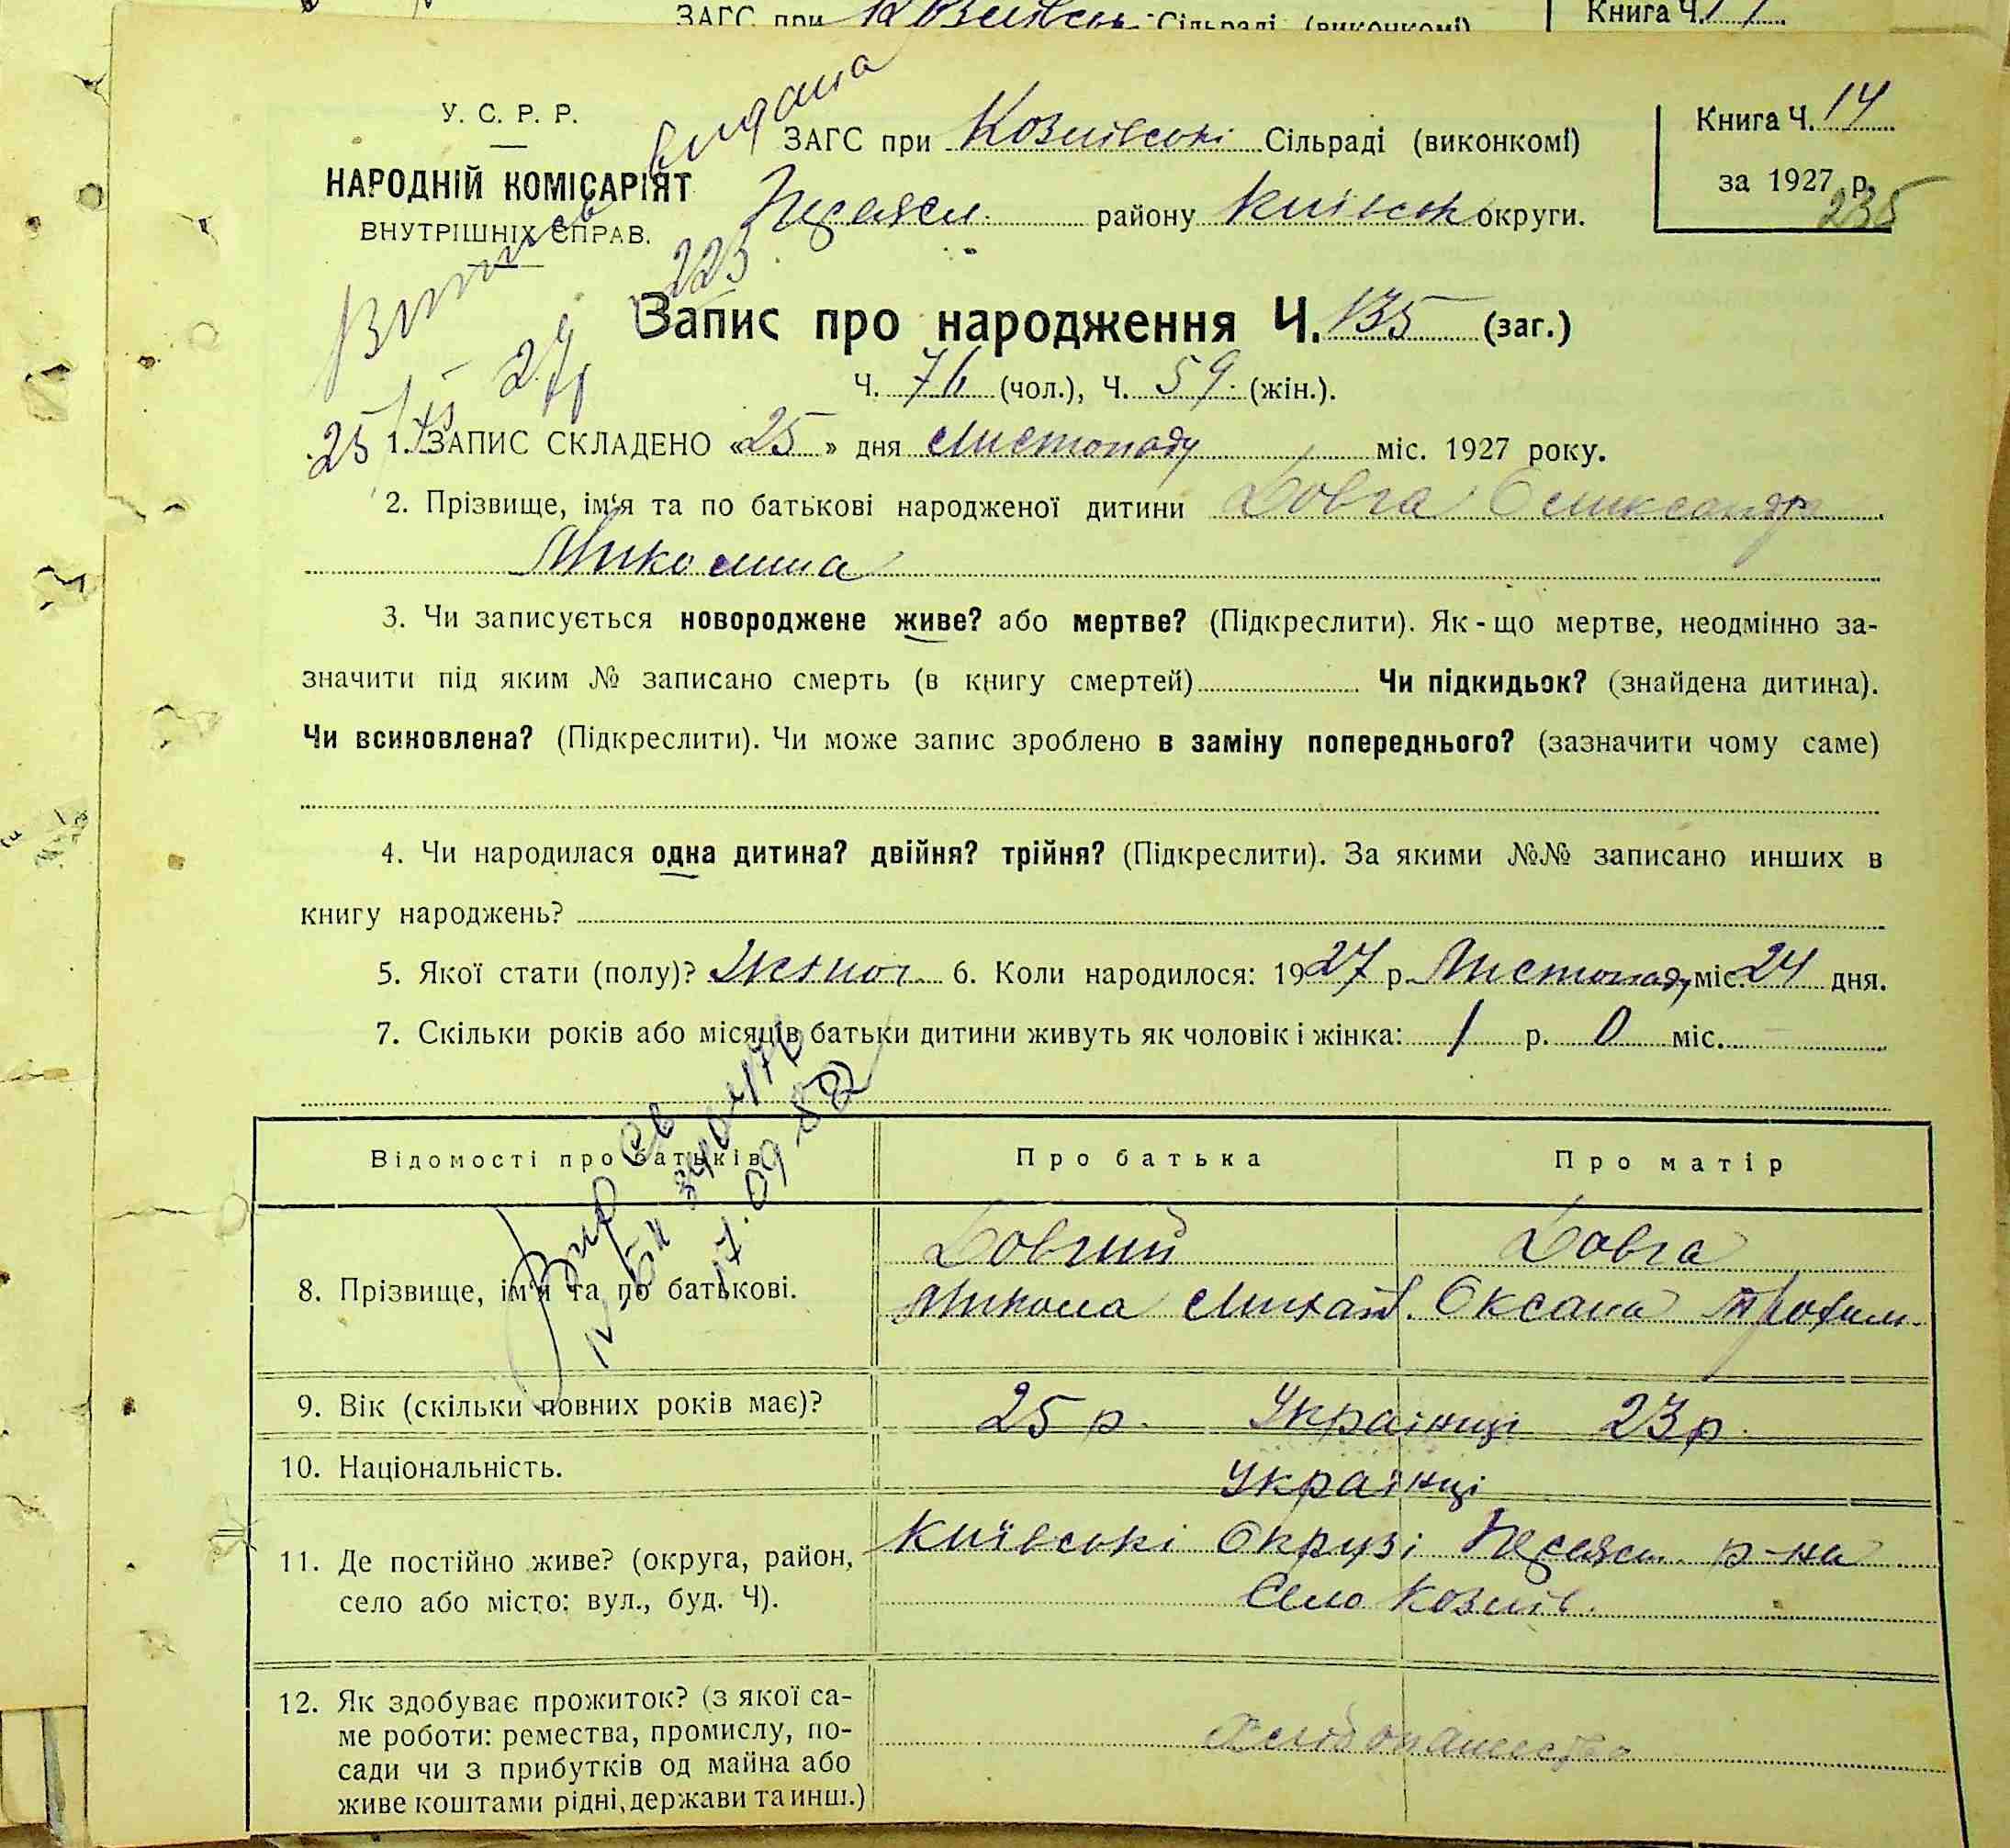 ЗАГС при Сільраді (виконкомі)
Книга Ч.
У. С. Р. Р.
НАРОДНІЙ КОМІСАРІЯТ
ВНУТРІШНІХ СПРАВ.
видана
ЗАГС при Козинські Сільраді (виконкомі)
району Київськ округи.
Книга Ч. 14
за 1927 р.
235
223
Запис про народження Ч. 135 (заг.)
Ч. 76 (чол.), Ч. 59 (жін.).
25
1. ЗАПИС СКЛАДЕНО «25» дня Листопаду міс. 1927 року.
2. Прізвище, ім'я та по батькові народженої дитини Довга Олександра
Миколина
3. Чи записується новороджене живе? або мертве? (Підкреслити). Як-що мертве, неодмінно за-
значити під яким № записано смерть (в книгу смертей) Чи підкидьок? (знайдена дитина).
Чи всиновлена? (Підкреслити). Чи може запис зроблено в заміну попереднього? (зазначити чому саме)
4. Чи народилася одна дитина? двійня? трійня? (Підкреслити). За якими №№ записано инших в
книгу народжень?
5. Якої стати (полу)? Жіноч. 6. Коли народилося: 1927 р. Листопаду міс. 24 дня.
7. Скільки років або місяців батьки дитини живуть як чоловік і жінка: 1 р. 0 міс.
Відомості про батьків Про батька Про матір
8. Прізвище, ім'я та по батькові.
Довгий Довга
Микола Михайл. Оксана Трохим.
17.09.82
9. Вік (скільки повних років має)? 25 р. Українці 23 р.
10. Національність. Українці
11. Де постійно живе? (округа, район,
село або місто: вул., буд. Ч).
Київські Окрузі р-на
Село Козин.
12. Як здобуває прожиток? (з якої са-
ме роботи: ремества, промислу, по-
сади чи з прибутків од майна або
живе коштами рідні, держави та инш.)
Хлібопашество